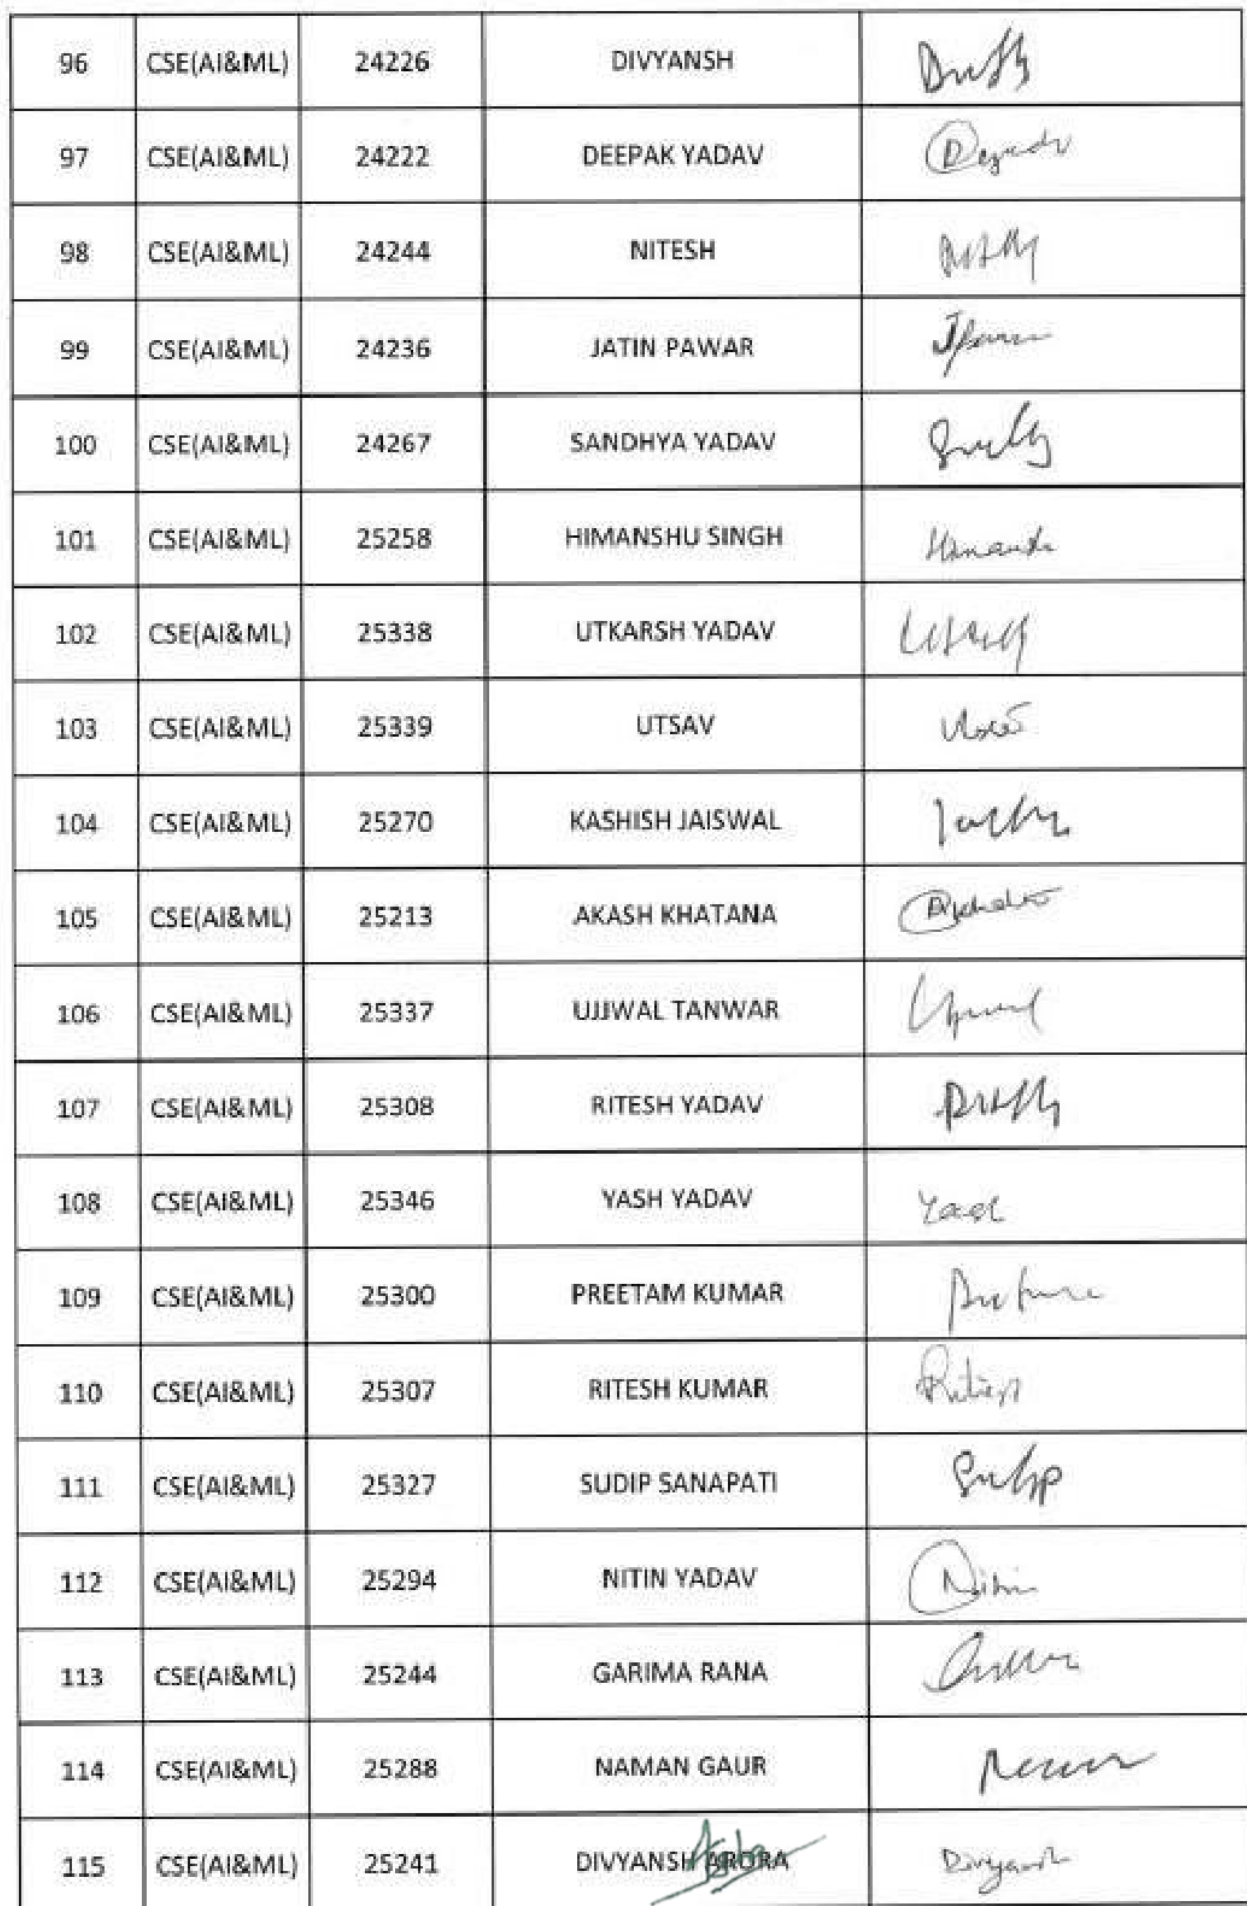 96 CSE(AI&ML) 24226 DIVYANSH
97 CSE(AI&ML) 24222 DEEPAK YADAV
98 CSE(AI&ML) 24244 NITESH
99 CSE(AI&ML) 24236 JATIN PAWAR
100 CSE(AI&ML) 24267 SANDHYA YADAV
101 CSE(AI&ML) 25258 HIMANSHU SINGH
102 CSE(AI&ML) 25338 UTKARSH YADAV
103 CSE(AI&ML) 25339 UTSAV
104 CSE(AI&ML) 25270 KASHISH JAISWAL
105 CSE(AI&ML) 25213 AKASH KHATANA
106 CSE(AI&ML) 25337 UJJWAL TANWAR
107 CSE(AI&ML) 25308 RITESH YADAV
108 CSE(AI&ML) 25346 YASH YADAV
109 CSE(AI&ML) 25300 PREETAM KUMAR
110 CSE(AI&ML) 25307 RITESH KUMAR
111 CSE(AI&ML) 25327 SUDIP SANAPATI
112 CSE(AI&ML) 25294 NITIN YADAV Nitin
113 CSE(AI&ML) 25244 GARIMA RANA
114 CSE(AI&ML) 25288 NAMAN GAUR
115 CSE(AI&ML) 25241 DIVYANSH ARORA Divyansh